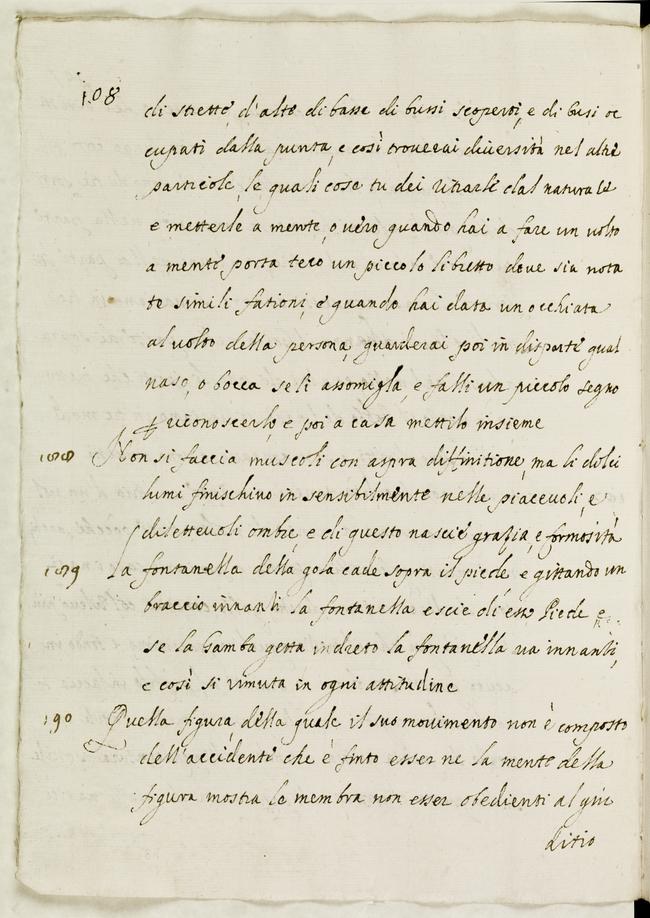 108
di strette, d'alte di basse di bussi scoperti, e di busi oc
cupati dalla punta, e così trouerai diuersità nel altre
particole, le quali cose tu dei ritrarle dal naturale
e metterle a mente, o uero quando hai a fare un uolto
a mente porta teco un piccolo libretto doue sia nota
te simili fationi, e quando hai data un occhiata
al uolto della persona, guarderai poi in disparte qual
naso, o bocca se li assomiglia, e falli un piccolo segno
riconoscerlo, e poi a casa mettilo insieme
188 Non si faccia muscoli con aspra diffinitione, ma li dolci
lumi finischino in sensibilmente nelle piaceuoli, e
dilettevoli ombre, e di questo nascie grazia, e formosità
189 La fontanella della gola cade sopra il piede e gittando un
braccio innanti la fontanella escie di esso Piede e
se la gamba getta indreto la fontanella ua innanti,
e così si rimuta in ogni attitudine
190 Quella figura, della quale il suo mouimento non è composto
dell'accidenti che è finto esser ne la mente della
figura mostra le membra non esser obedienti al giu
ditio